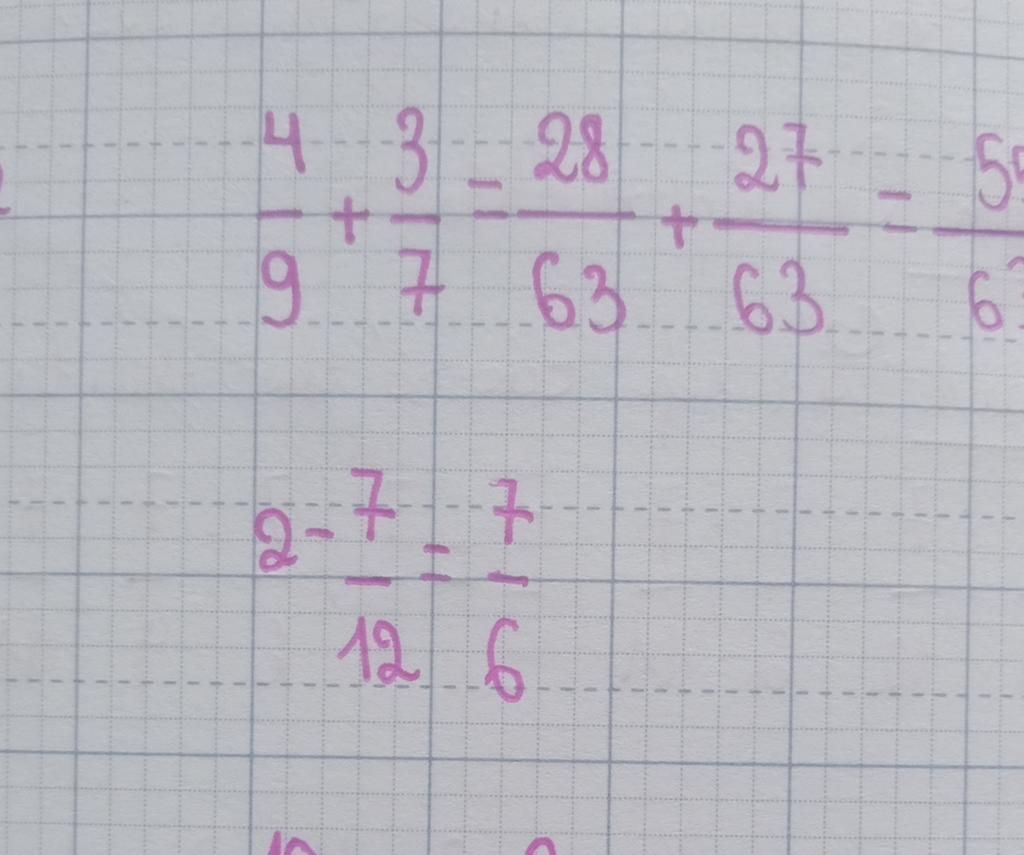 4/9 + 3/7 = 28/63 + 27/63 =
2 - 7/12 = 7/6